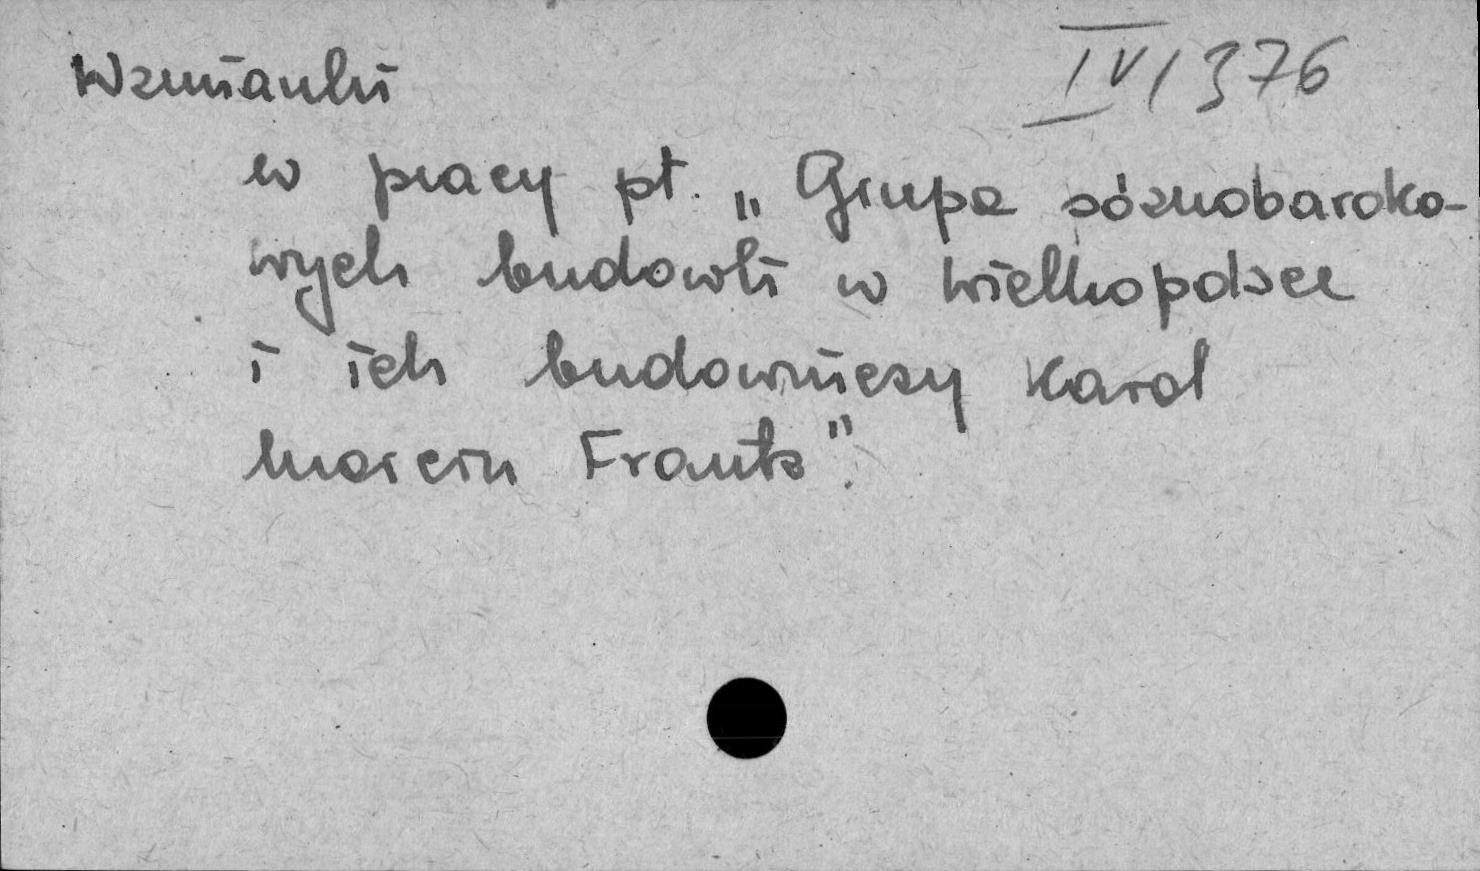 IV/376
Wzmianki
w pracy pt. „Grupa póznobaroko-
wych budowli w wielkopolsce
i ich budowniczy Karol
Marcin Frantz".